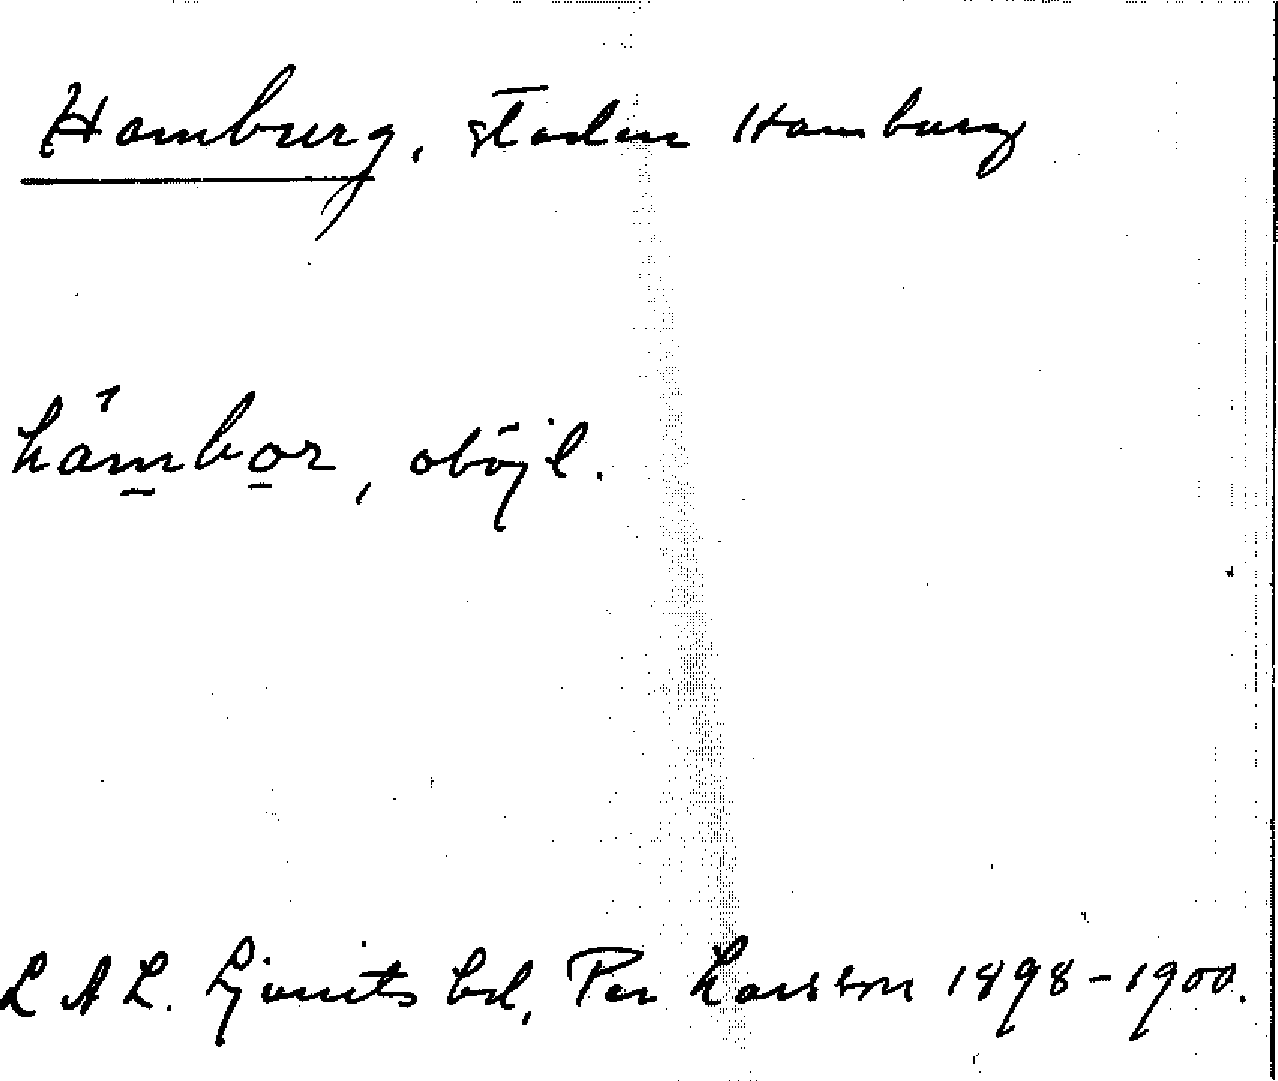 Hamburg, staden Hamburg
hámbor, oböjl.
L A L. Ljunits hd, Per Larsson 1898-1900.